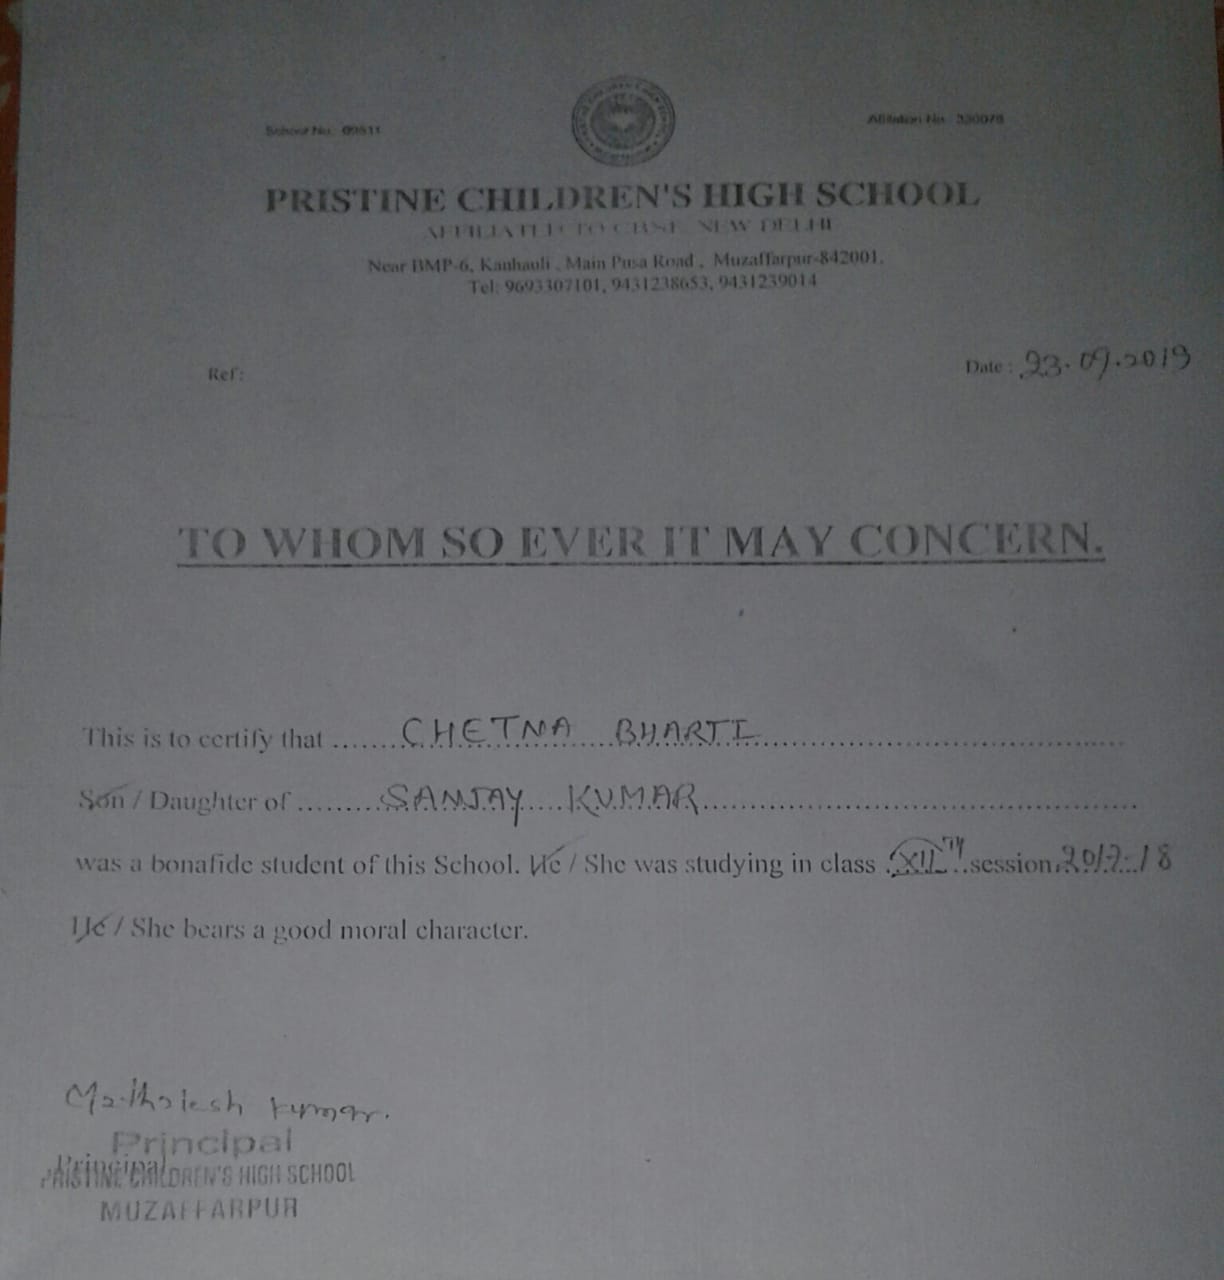 School No. 09511
Affiliation No. 330078
PRISTINE CHILDREN'S HIGH SCHOOL
AFFILIATED TO CBSE, NEW DELHI
Near BMP-6, Kanhauli , Main Pusa Road , Muzaffarpur-842001.
Tel: 9693307101, 9431238653, 9431239014
Ref:
Date : 23.09.2019
TO WHOM SO EVER IT MAY CONCERN.
This is to certify that ....... CHETNA BHARTI .......
Son / Daughter of ......... SANJAY KUMAR .......
was a bonafide student of this School. He / She was studying in class XIITH session 2017-18
He / She bears a good moral character.
Kumar.
Principal
Principal
PRISTINE CHILDREN'S HIGH SCHOOL
MUZAFFARPUR